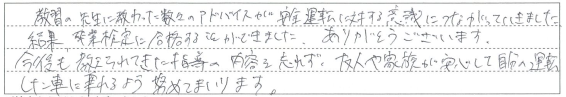 教習の先生に教わった数々のアドバイスが安全運転に対する意識につながっていきました
結果、卒業検定に合格することができました。ありがとうございます。
今後も教えられてきた指導の内容を忘れず、友人や家族が安心して自分の運転
した車に乗れるよう努めてまいります。